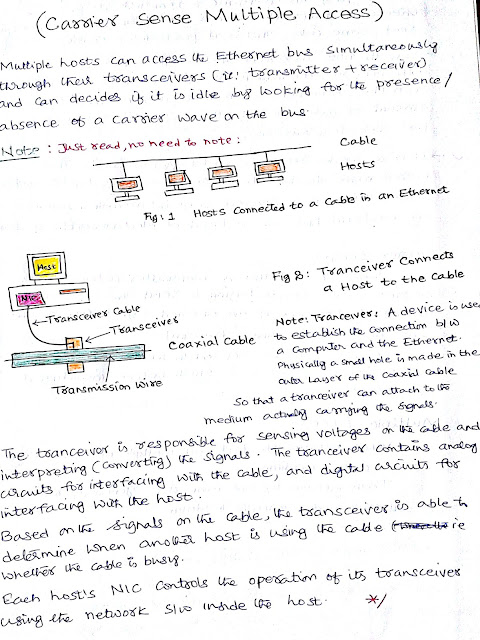 (Carrier Sense Multiple Access)
Multiple hosts can access the Ethernet bus simultaneously
through their transceivers (ie: transmitter + receiver)
and can decides if it is idle by looking for the presence/
absence of a carrier wave on the bus.
Note : Just read, no need to note :
Cable
Hosts
Fig: 1 Hosts connected to a Cable in an Ethernet
Host
NIC
Transceiver Cable
Transceiver
Coaxial Cable
Transmission wire
Fig 2: Tranceiver Connects
a Host to the Cable
Note: Tranceiver: A device is use
to establish the connection b/w
a computer and the Ethernet.
Physically a small hole is made in the
outer Layer of the coaxial cable
so that a tranceiver can attach to the
medium actually carrying the signals.
The tranceiver is responsible for sensing voltages on the cable and
interpreting (converting) the signals. The tranceiver contains analog
circuits for interfacing with the cable, and digital circuits for
interfacing with the host.
Based on the signals on the cable, the transceiver is able to
determine when another host is using the cable ie
whether the cable is busy.
Each host's NIC controls the operation of its transceiver
using the network s/w inside the host. */